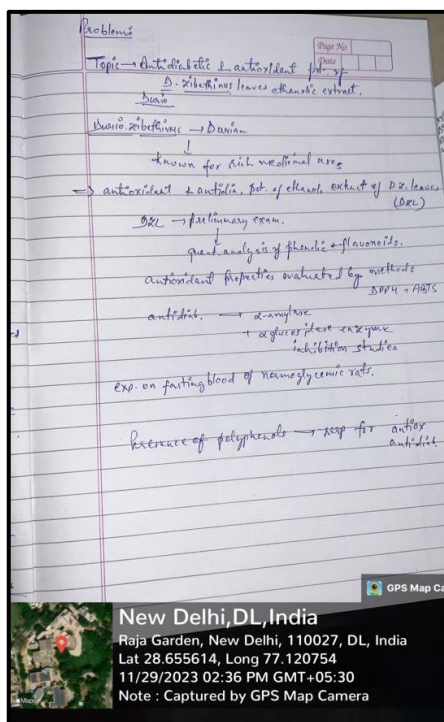 Problem:
Page No.
Date
Topic → Antidiabetic & antioxidant pot. of
D. zibethinus leaves ethanolic extract.
Durio
Durio zibethinus → Durian
↓
known for rich medicinal uses
⇒ antioxidant & antidia. pot. of ethanolic extract of D.z. leaves
(DZL)
DZL → preliminary exam.
↓
quant analysis of phenolic + flavonoids.
antioxidant Properties evaluated by methods
DPPH + ABTS
antidiab. → α-amylase
+ α glucosidase enzyme
inhibition studies
exp. on fasting blood of normoglycemic rats.
Presence of polyphenols → resp for antiox
antidiab.
GPS Map Ca
New Delhi,DL,India
Raja Garden, New Delhi, 110027, DL, India
Lat 28.655614, Long 77.120754
11/29/2023 02:36 PM GMT+05:30
Note : Captured by GPS Map Camera